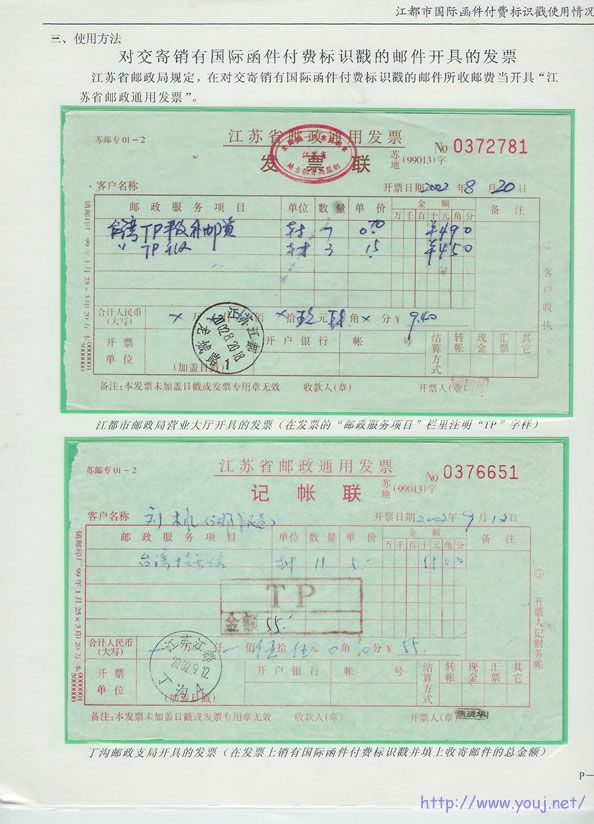 江都市国际函件付费标识戳使用情况
三、使用方法
对交寄销有国际函件付费标识戳的邮件开具的发票
江苏省邮政局规定，在对交寄销有国际函件付费标识戳的邮件所收邮费当开具“江
苏省邮政通用发票”。
苏邮专 01－2
江苏省邮政通用发票
发 票 联
江苏省
苏地 (99013) 字 No 0372781
客户名称 开票日期 2002 年 8 月 20 日
邮 政 服 务 项 目 单位 数 量 单 价 金 额 万 千 百 十 元 角 分 备 注
台湾TP 7 0.70 ¥490
〃 TP 3 15 ¥450
合计人民币（大写） × 仟 × 佰 × 拾 元 角 × 分 ¥ 9.40
江苏江都
2002.8.20.18
龙城路 1
开 票 单 位 （加盖日戳） 开 户 银 行 帐 号 结算方式 转帐 现金 汇票 其它
备注：本发票未加盖日戳或发票专用章无效 收款人（章） 开票人（章）
②客户收执
江都市邮政局营业大厅开具的发票（在发票的“邮政服务项目”栏里注明“TP”字样）
苏邮专 01－2
江苏省邮政通用发票
记 帐 联
苏地 (99013) 字 No 0376651
客户名称 刘 开票日期 2002 年 9 月 12 日
邮 政 服 务 项 目 单位 数 量 单 价 金 额 万 千 百 十 元 角 分 备 注
台湾 封 11 5.- 5500
TP
金额 55.-
合计人民币（大写） 仟 佰 伍 拾 伍 元 0 角 0 分 ¥ 55.-
江苏江都
2002.9.12
丁沟 A
开 票 单 位 （加盖日戳） 开 户 银 行 帐 号 结算方式 转帐 现金 汇票 其它
备注：本发票未加盖日戳或发票专用章无效 收款人（章） 开票人（章）
③开票人记财务帐
丁沟邮政支局开具的发票（在发票上销有国际函件付费标识戳并填上收寄邮件的总金额）
P—
http://www.youj.net/